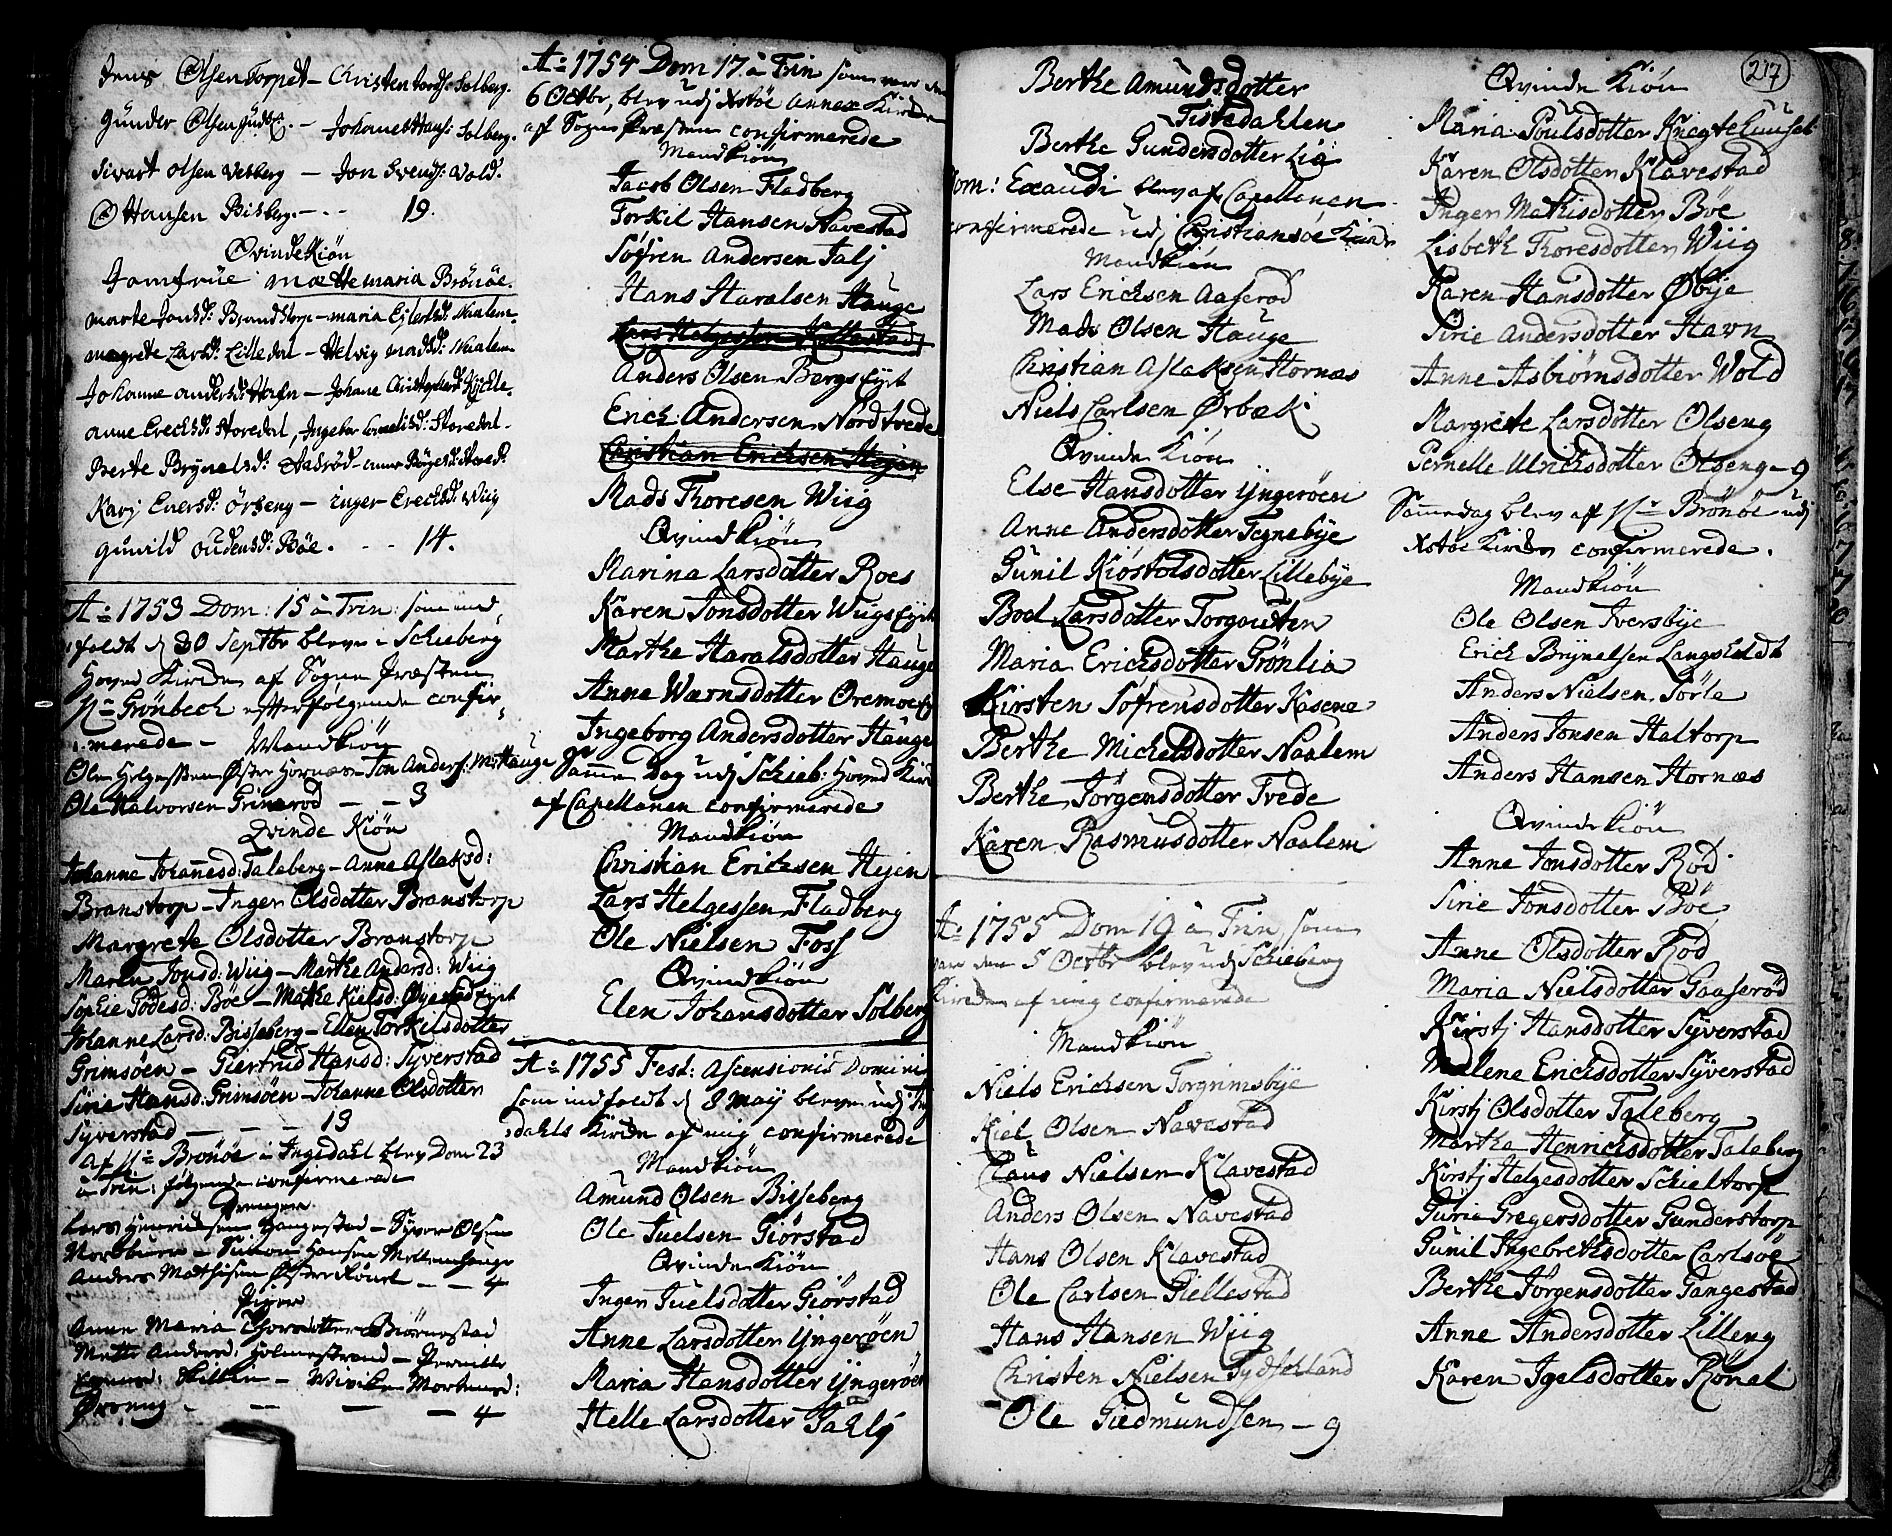 Jens Olsen Torpet - Christen Tords: Solberg.
Gunder Olsen Gudb: - Johannes Hans: Solberg.
Sivart Olsen Vesberg - Jon Svends: Vold.
O Hansen Bisberg. - - 19.
QvindeKiön
Jomfrüe Mætte Maria Brönöe.
Marte Jonsd: Brandstorp - Maria Ejlertsd: Naalem
Magrete Larsd: Lilledal - Helvig Madsd: Naalem
Johanne Andersd: Hafn - Johane Christophersd:
Anne Erechsd: Storedal, Ingebor Cornelisd: Storedal -
Berte Brynelsd: Aasröd - Anne
Karj Euersd: Örseng - Inger Erechsd: Wiig
Gunild Oudensd: Böe. - - 14.
Ao 1753 Dom: 15 à Trin: som ind
faldt d 30 Septbr bleve i Schieberg
Hoved Kirken af Sogne Præsten
Hr Grönbech efterfölgende confir-
merede - Mandkiön
Ole Helgessen Östre Hornæs - Jon Anders: M: Hauge
Ole Halvorsen Grimeröd - - 3
Qvinde Kiön
Johanne Johannesd: Taleberg - Anne Aslaksd:
Branstorp - Inger Olsdotter Branstorp
Margrete Olsdotter Branstorp
Maren Jonsd: Wiig - Marthe Andersd: Wiig
Sophie Födesd: Böe - Mathe Kielsd: Öyestad Eyet
Johanne Larsd: Bisseberg - Ellen Torkilsdotter
Grimsöen - Giertrud Hansd: Syverstad
Sirie Hansd: Grimsöen - Johanne Olsdotter
Syverstad - - - 13
Af Hr Brönöe i Ingedahl blev Dom 23
a Trin: fölgende confirmerede
Drenge
Lars Henrichsen Hangestad - Syver Olsen
Nordbuen - Simon Hansen Mellemhauge
Anders Mathisen Östre Rönet - - 4
Piger
Anne Maria Thorsdotter Biörnestad
Mette Andersd: Holmestrand - Pernille
- Wiviken Mortensd:
Örseng - - - - 4
Ao 1754 Dom 17 à Trin som var den
6 Octbr, blev udj Xstöe Annex Kirke
af Sogne Præsten confirmerede
Mandkiön
Jacob Olsen Fladberg
Torkil Hansen Navestad
Söfren Andersen Talj
Hans Haralsen Hauge
Lars Helgessen
Anders Olsen Bergs Eyet
Erich Andersen Nordtvede
Christian Erichsen Hejen
Mads Thoresen Wiig
Qvindkiön
Marina Larsdotter Roes
Karen Jonsdotter Wiigs Eyet
Marthe Haralsdotter Hauge
Anne Wærnsdotter Oremoe
Ingeborg Andersdotter Hauge
Samme Dag udj Schieb: Hoved Kirke
af Capellanen confirmerede
Mandkiön
Christian Erichsen Hejen
Lars Helgessen Fladberg
Ole Nielsen Foss
Qvindkiön
Elen Johansdotter Solberg
Ao 1755 Fest: Ascensionis Domini
som indfaldt d 8 Maij bleve udj In
dahls Kirke af mig confirmerede
Mandkiön
Amund Olsen Bisseberg
Ole Juelsen Giörstad
Qvinde Kiön
Inger Juelsdotter Giörstad
Anne Larsdotter Yngeröen
Maria Hansdotter Yngeröen
Helle Larsdotter Dahly
217
Berthe Amundsdotter
Tistedahlen
Berthe Gundersdotter Lia
Dom: Exaudi blev af Capellanen
confirmerede udj Christiansöe Kirke
Mandkiön
Lars Erichsen Aaseröd
Mads Olsen Hauge
Christian Aslaksen Hornæs
Niels Carlsen Örbæk
Qvinde Kiön
Else Hansdotter Yngeröen
Anne Andersdotter Tegnebye
Gunil Kiöstolsdotter Lillebye
Boel Larsdotter Torgouten
Maria Erichsdotter Grönlia
Kirsten Söfrensdotter Kasene
Berthe Michelsdotter Naalem
Berthe Jörgensdotter Tvede
Karen Rasmusdotter Naalem
Ao 1755 Dom 19 à Trin, som
var den 5 Octbr blev udj Schieberg
Kirke af mig confirmerede
Mandkiön
Niels Erichsen Torgrimsbye
Kiel Olsen Navestad
Claus Nielsen Klavestad
Anders Olsen Navestad
Hans Olsen Klavestad
Ole Carlsen Giellestad
Hans Hansen Wiig
Christen Nielsen Tydskland
Ole Gudmundsen - 9
Qvinde Kiön
Maria Poulsdotter Knegtehuuset
Karen Olsdotter Klavestad
Inger Mathisdotter Böe
Lisbeth Thoresdotter Wiig
Karen Hansdotter Öbye
Sirie Andersdotter Havn
Anne Asbiörnsdotter Wold
Margrete Larsdotter Olseng
Pernelle Ulrichsdotter Olseng - 9
Samme dag blev af Hr Brönöe udj
Xstöe Kirke confirmerede.
Mandkiön
Ole Olsen Iversbye
Erich Brynelsen Langsholdt
Anders Nielsen Sörle
Anders Jonsen Haltorp
Anders Hansen Hornæs
Qvindekiön
Anne Jonsdotter Röd
Sirie Jonsdotter Böe
Anne Olsdotter Röd
Maria Nielsdotter Gaaseröd
Kirstj Hansdotter Syverstad
Malene Erichsdotter Syverstad
Kirstj Olsdotter Taleberg
Marthe Henrichsdotter Taleberg
Kirstj Helgesdotter Schieltorp
Gurie Gregersdotter Gunderstorp
Gunil Ingebrethsdotter Carlsöe
Berthe Jörgensdotter Gangestad
Anne Andersdotter Lilleng
Karen Igelsdotter Rönel